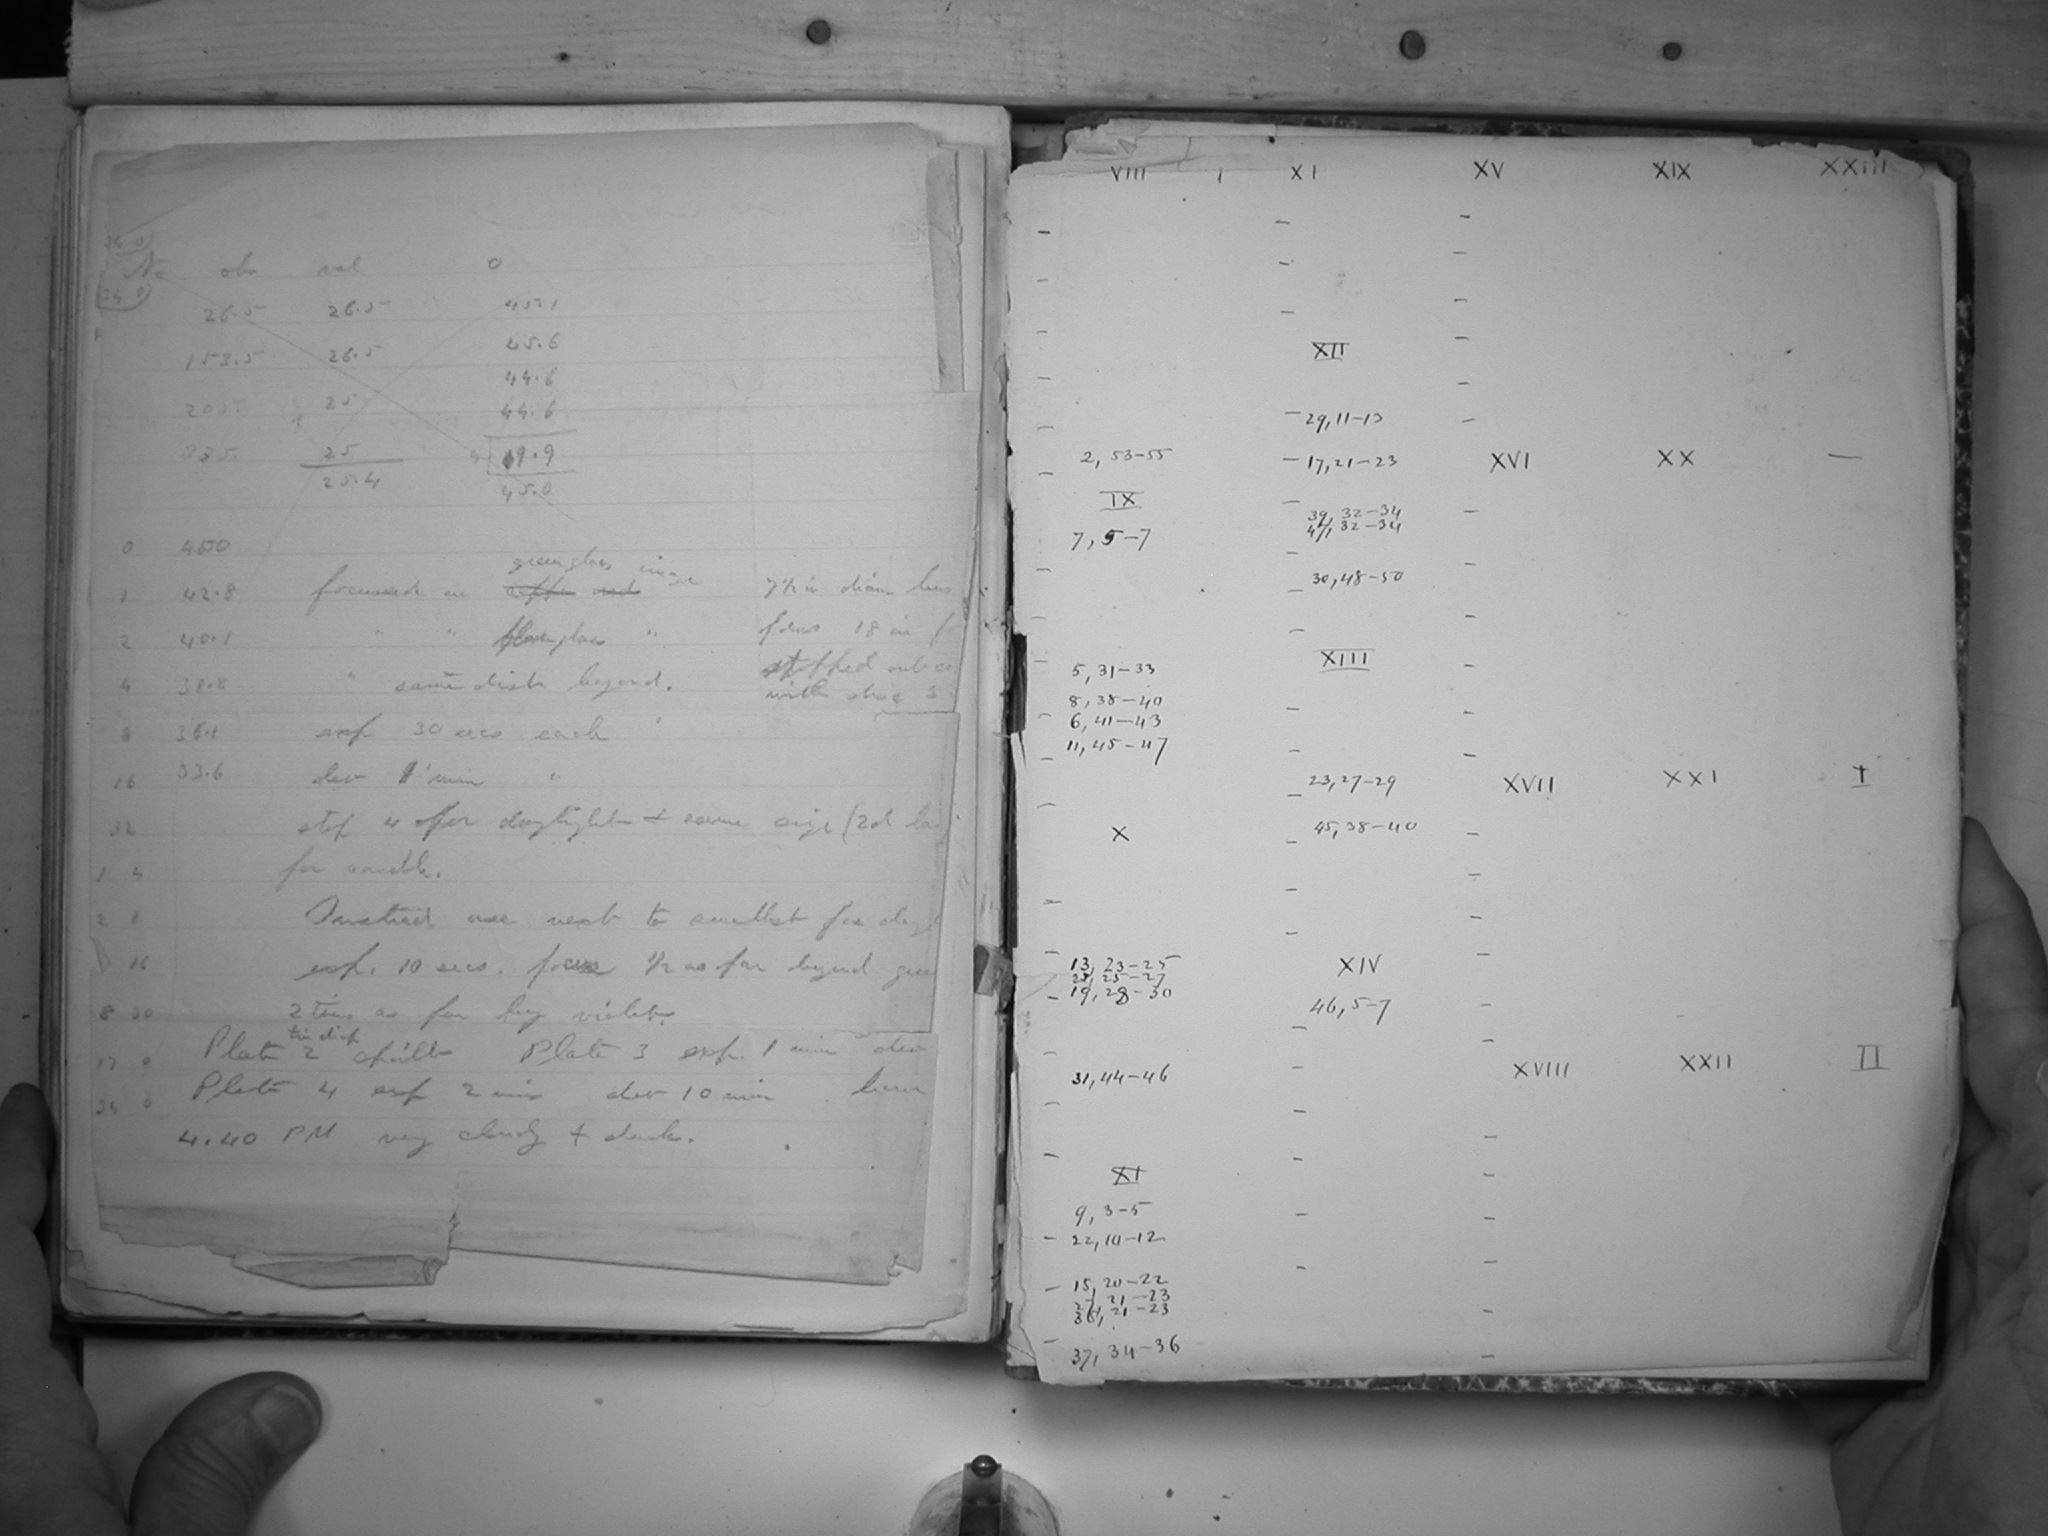 No obs val 0
26.5 26.5 45.1
153.5 26.5 45.6
44.6
205. 25 44.6
285. 25 19.9
25.4 45.0
0 4500
greenglass image
1 42.8 focussed on 7½ in diam lens
2 40.1 " " " focus 18 in
4 38.8 " same dist beyond. stopped out
with disc
8 36.1 exp 30 secs each
16 33.6 dev 1 min "
32 stop 4 for daylight + same size
for candle.
2 8 Instead use next to smallest for
16 exp. 10 secs. focus ½ as far beyond
8 30 2 times as far bey violet.
17 0 Plate 2 spoilt Plate 3 exp. 1 min dev
34 0 Plate 4 exp 2 min dev 10 min
4.40 PM very cloudy + dark.
VIII XI XV XIX XXIII
XII
29, 11-13
2, 53-55 17, 21-23 XVI XX —
IX
39, 32-34
7, 5-7 41, 32-34
30, 48-50
XIII
5, 31-33
8, 38-40
6, 41-43
11, 45-47
23, 27-29 XVII XXI I
X 45, 38-40
13, 23-25 XIV
25-27
19, 28-30
46, 5-7
31, 44-46 XVIII XXII II
XI
9, 3-5
22, 10-12
15, 20-22
27, 21-23
36, 21-23
37, 34-36